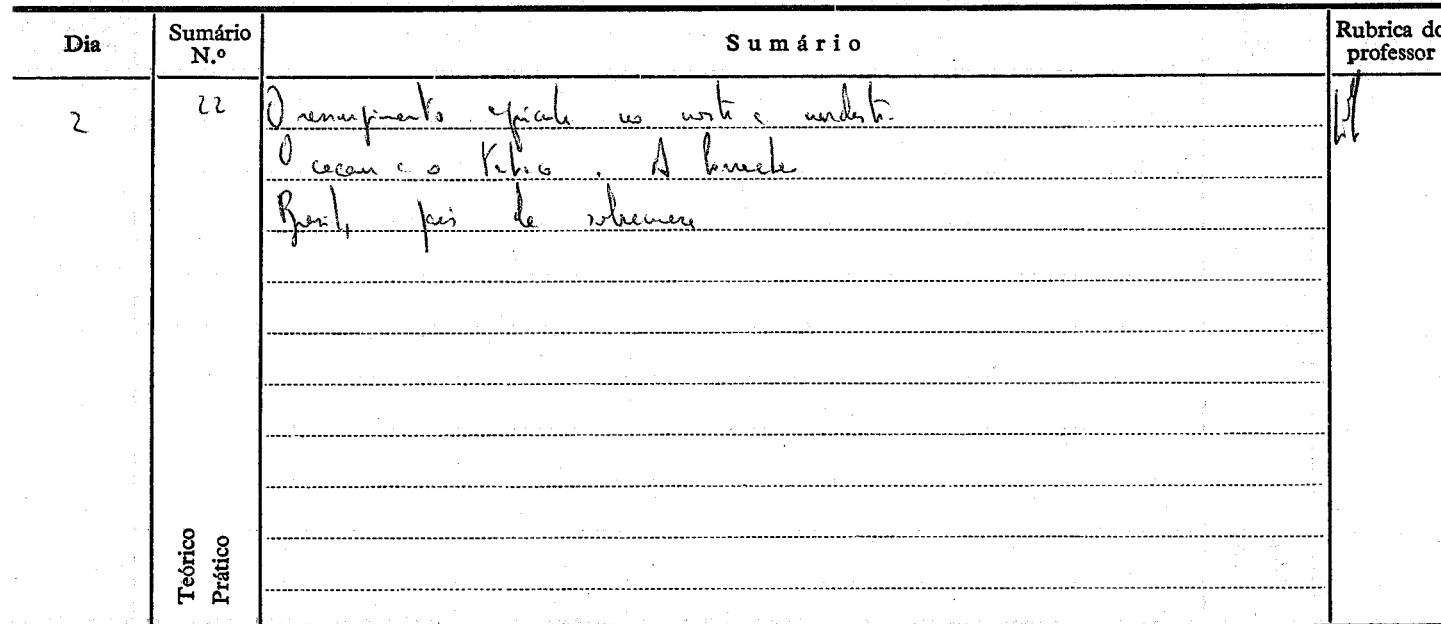 Dia
Sumário N.º
Sumário
Rubrica do professor
2
22
O ressurgimento agrícola no norte e nordeste.
O cacau e o tabaco. A borracha
Brasil, país de sobremesa
Teórico
Prático